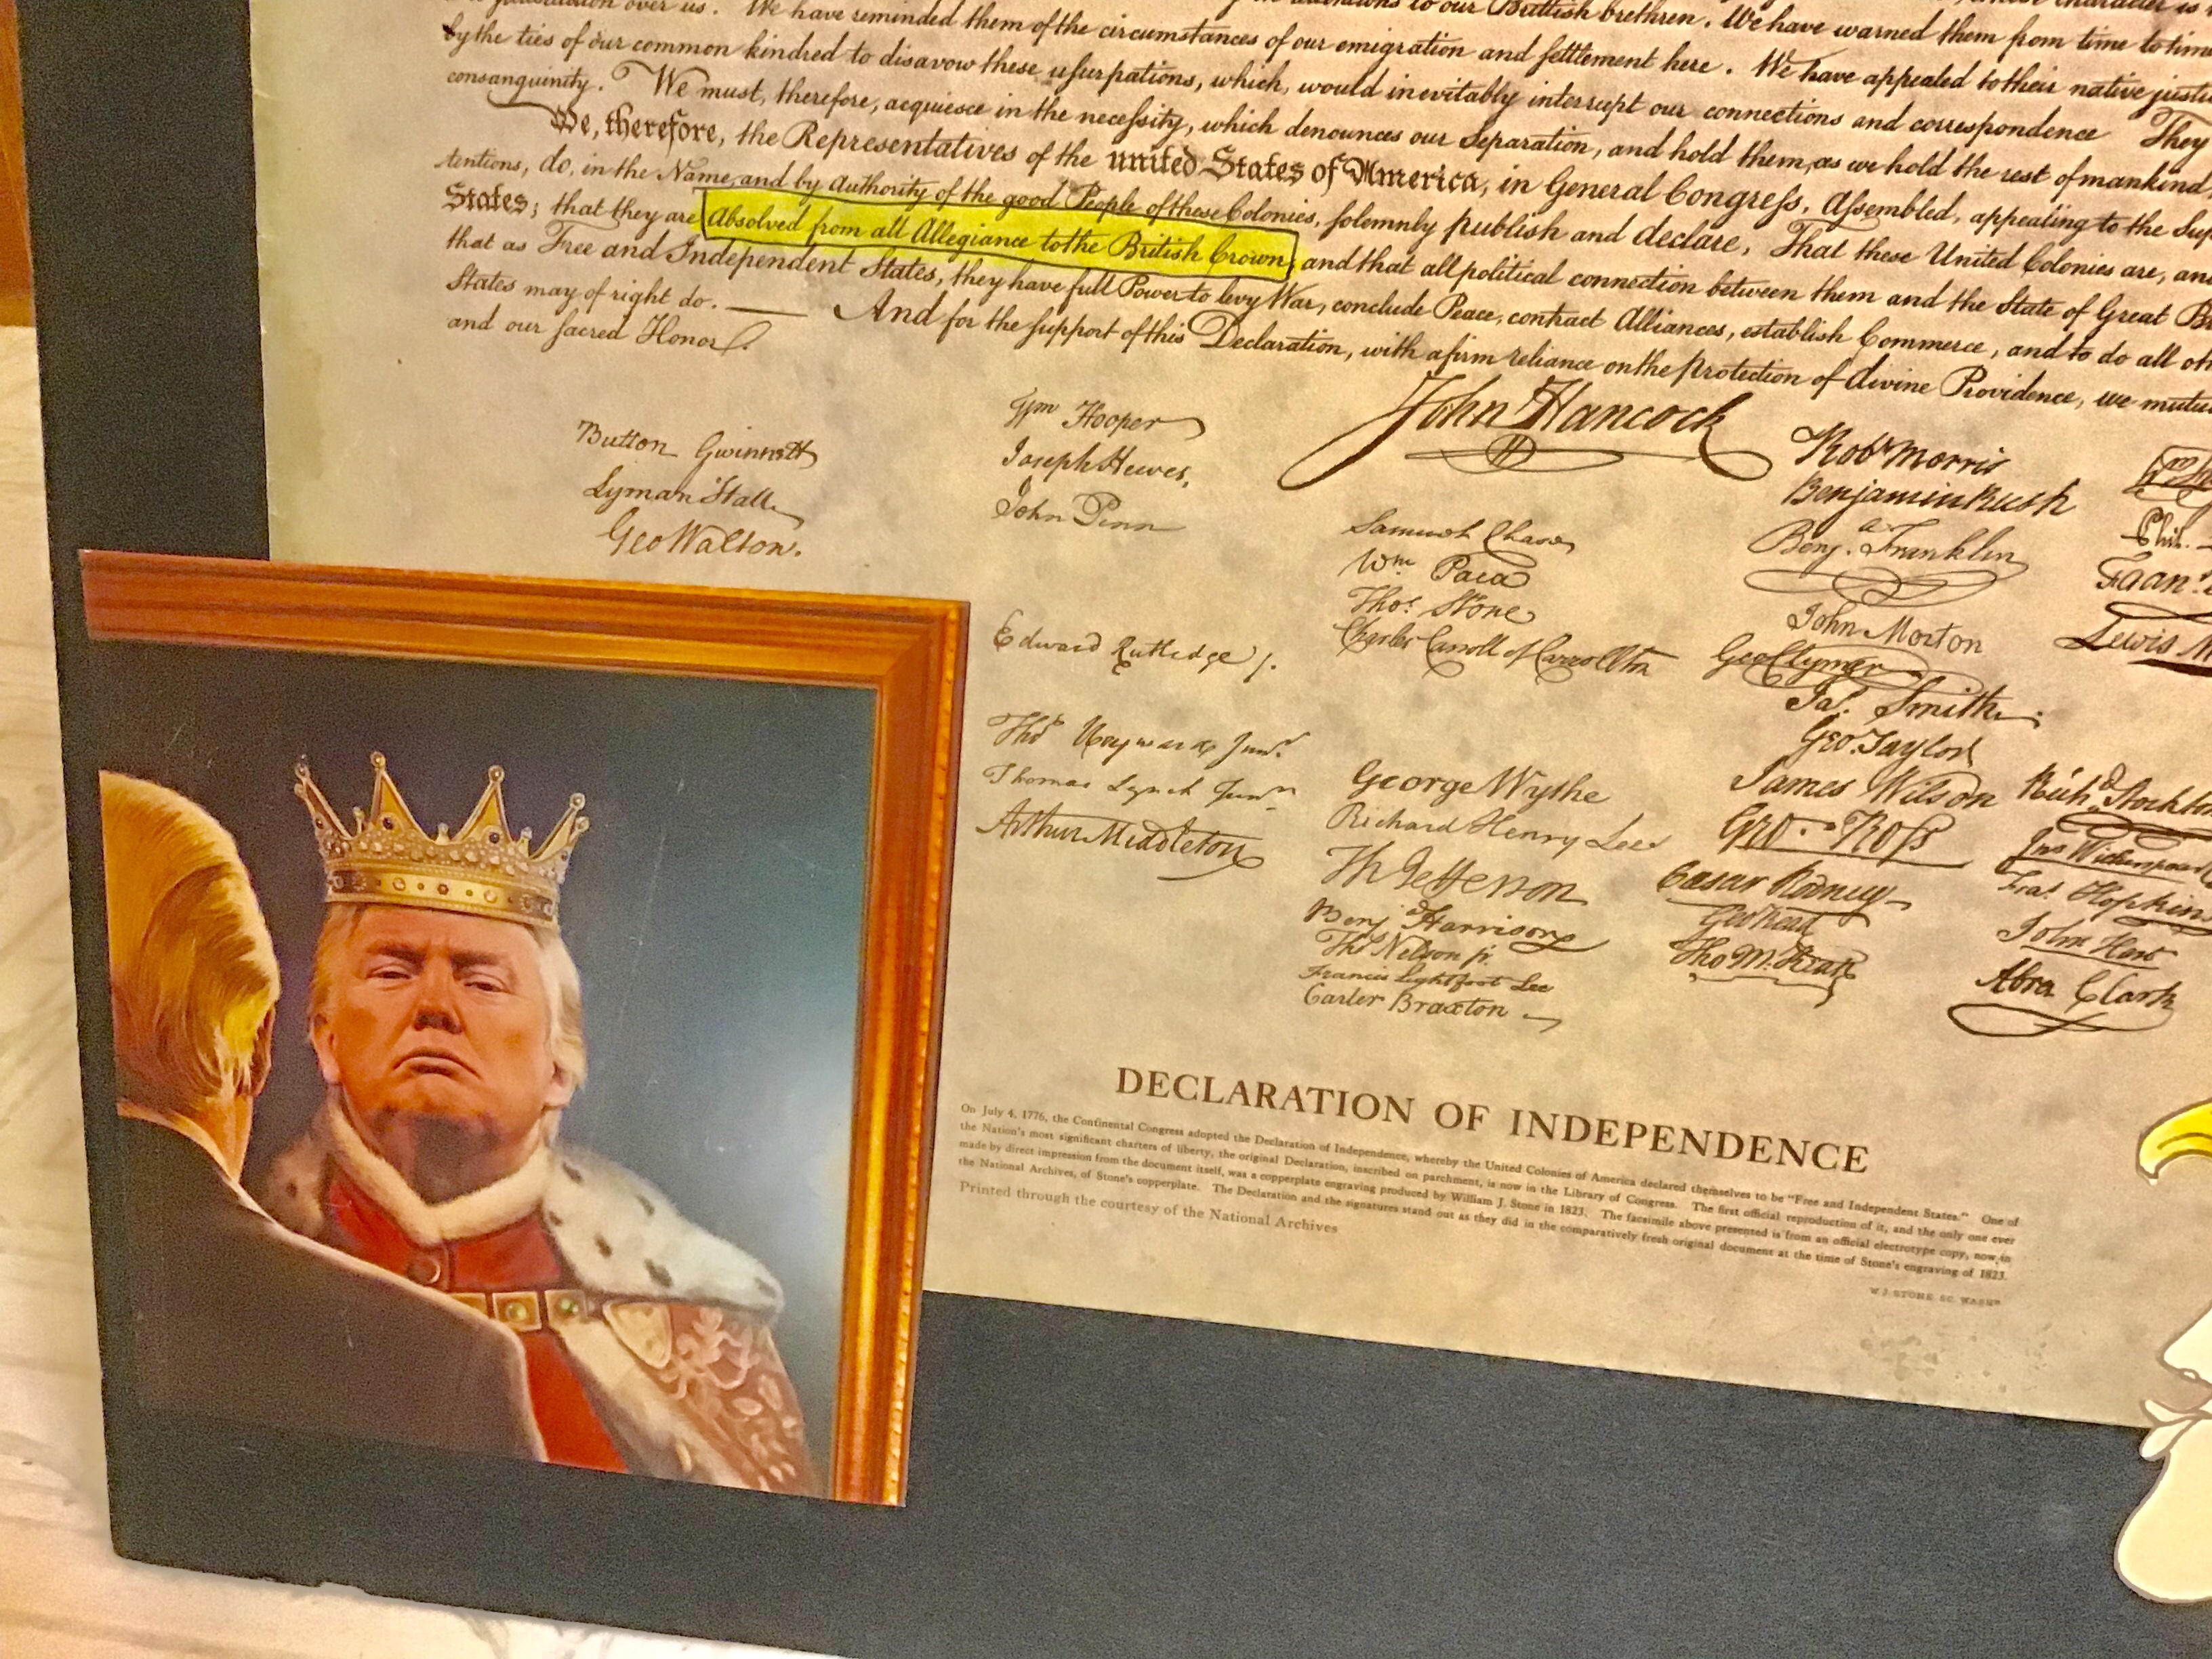 in attentions to our Brittish brethren. We have warned them from time to time
jurisdiction over us. We have reminded them of the circumstances of our emigration and settlement here. We have appealed to their native justi
by the ties of our common kindred to disavow these usurpations, which, would inevitably interrupt our connections and correspondence They
consanguinity. We must, therefore, acquiesce in the necessity, which denounces our Separation, and hold them, as we hold the rest of mankind
We, therefore, the Representatives of the united States of America, in General Congress, Assembled, appealing to the Sup
tentions, do, in the Name, and by Authority of the good People of these Colonies, solemnly publish and declare, That these United Colonies are, an
States; that they are Absolved from all Allegiance to the British Crown, and that all political connection between them and the State of Great B
that as Free and Independent States, they have full Power to levy War, conclude Peace, contract Alliances, establish Commerce, and to do all oth
States may of right do. And for the support of this Declaration, with a firm reliance on the protection of divine Providence, we mutu
and our sacred Honor.
Button Gwinnett
Lyman Hall
Geo Walton.
Wm Hooper
Joseph Hewes,
John Penn
Edward Rutledge /.
Thos Heyward Junr.
Thomas Lynch Junr.
Arthur Middleton
John Hancock
Samuel Chase
Wm Paca
Thos. Stone
Charles Carroll of Carrollton
George Wythe
Richard Henry Lee
Th Jefferson
Benj Harrison
Thos Nelson jr.
Francis Lightfoot Lee
Carter Braxton
Robt Morris
Benjamin Rush
Benja. Franklin
John Morton
Geo Clymer
Jas. Smith
Geo. Taylor
James Wilson
Geo. Ross
Caesar Rodney
Geo Read
Tho M:Kean
Phil.
Fran
Lewis M
Richd Stockt
Jno Witherspoon
Fras. Hopkins
John Hart
Abra Clark
DECLARATION OF INDEPENDENCE
On July 4, 1776, the Continental Congress adopted the Declaration of Independence, whereby the United Colonies of America declared themselves to be "Free and Independent States." One of
the Nation's most significant charters of liberty, the original Declaration, inscribed on parchment, is now in the Library of Congress. The first official reproduction of it, and the only one ever
made by direct impression from the document itself, was a copperplate engraving produced by William J. Stone in 1823. The facsimile above presented is from an official electrotype copy, now in
the National Archives, of Stone's copperplate. The Declaration and the signatures stand out as they did in the comparatively fresh original document at the time of Stone's engraving of 1823.
Printed through the courtesy of the National Archives
W. J. STONE SC. WASHN